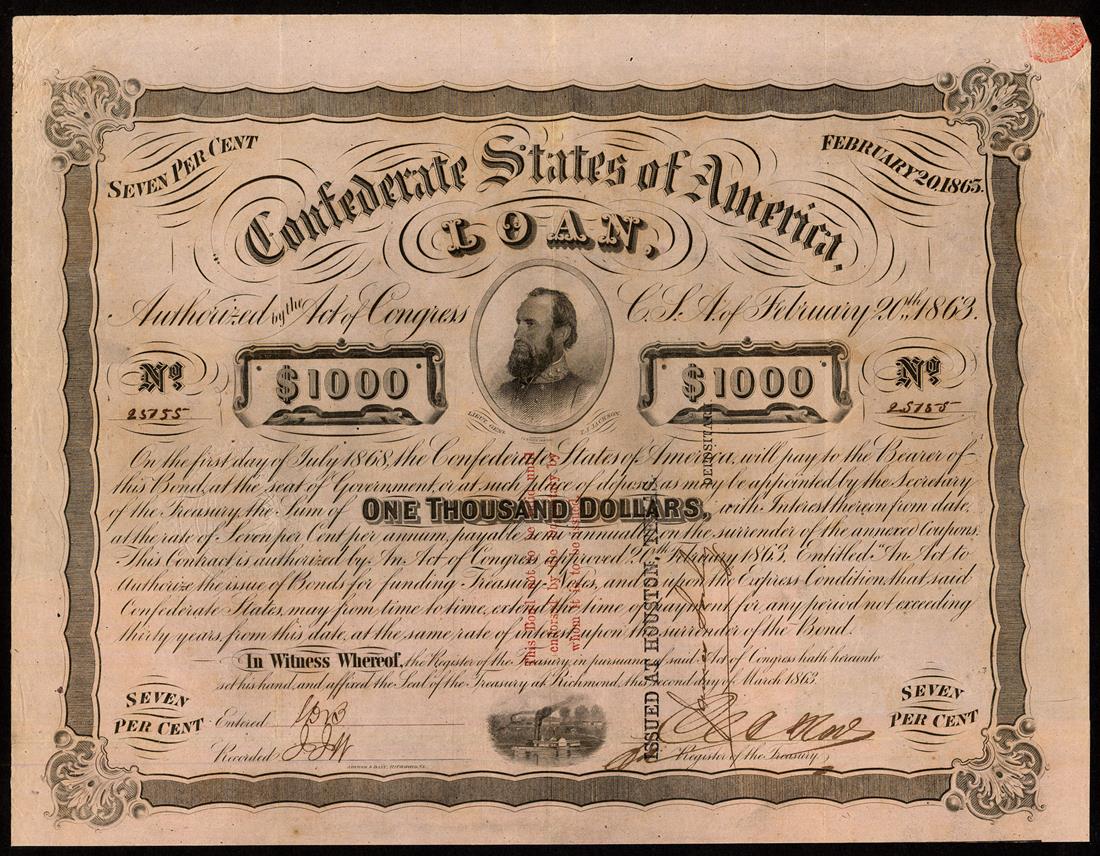 SEVEN PER CENT
FEBRUARY 20, 1863.
Confederate States of America.
LOAN,
Authorized by the Act of Congress C.S.A. of February 20th, 1863.
No.
$1000
$1000
No.
25755
25755
LIEUT. GENL.
T.J. JACKSON
On the first day of July 1868, the Confederate States of America, will pay to the Bearer of
this Bond, at the seat of Government, or at such place of deposit, as may be appointed by the Secretary
of the Treasury, the Sum of ONE THOUSAND DOLLARS, with Interest thereon from date,
at the rate of Seven per Cent per annum, payable semi annually on the surrender of the annexed Coupons.
This Contract is authorized by An Act of Congress approved 20th February 1863. Entitled "An Act to
Authorize the issue of Bonds for funding Treasury Notes, and is upon the Express Condition, that said
Confederate States, may from time to time, extend the time of payment for, any period not exceeding
thirty years, from this date, at the same rate of interest, upon the surrender of the Bond.
In Witness Whereof, the Register of the Treasury, in pursuance of said Act of Congress hath hereunto
set his hand, and affixed the Seal of the Treasury at Richmond, this second day of March 1863.
SEVEN
PER CENT
SEVEN
PER CENT
Entered
Recorded
Register of the Treasury
ARCHER & DALY, RICHMOND, VA.
This Bond not to be valid until
endorsed by the Depositary by
whom it is to be issued.
ISSUED AT HOUSTON, TEXAS,
DEPOSITARY